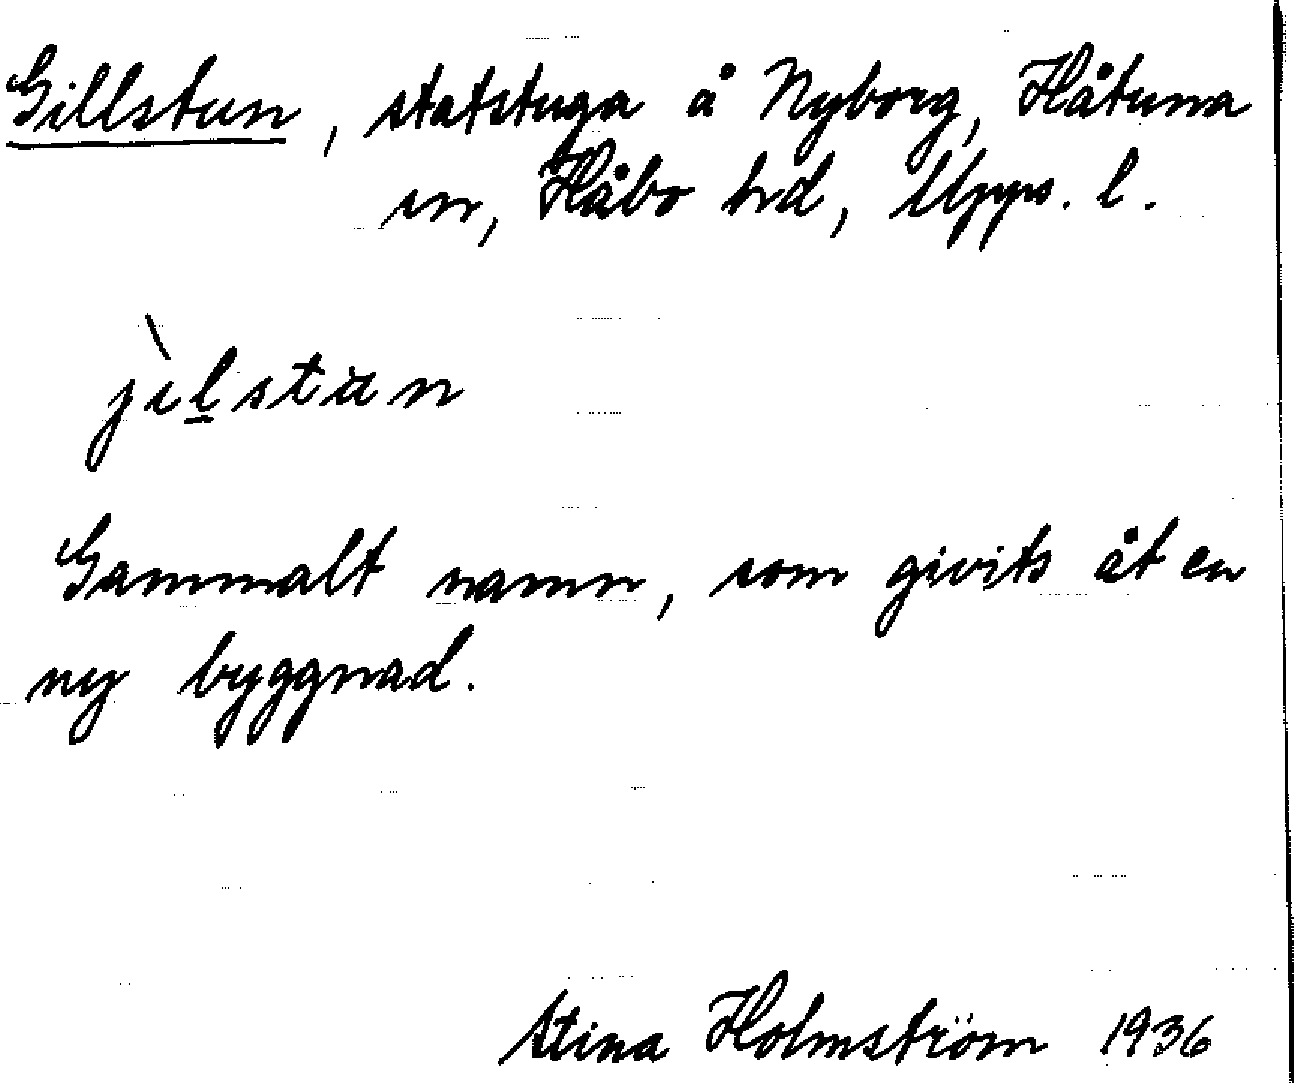 Gillstun, statstuga å Nyborg, Håtuna
sn, Håbo hd, Upps. l.
jìl̲stu̇n
Gammalt namn, som givits åt en
ny byggnad.
Stina Holmström 1936